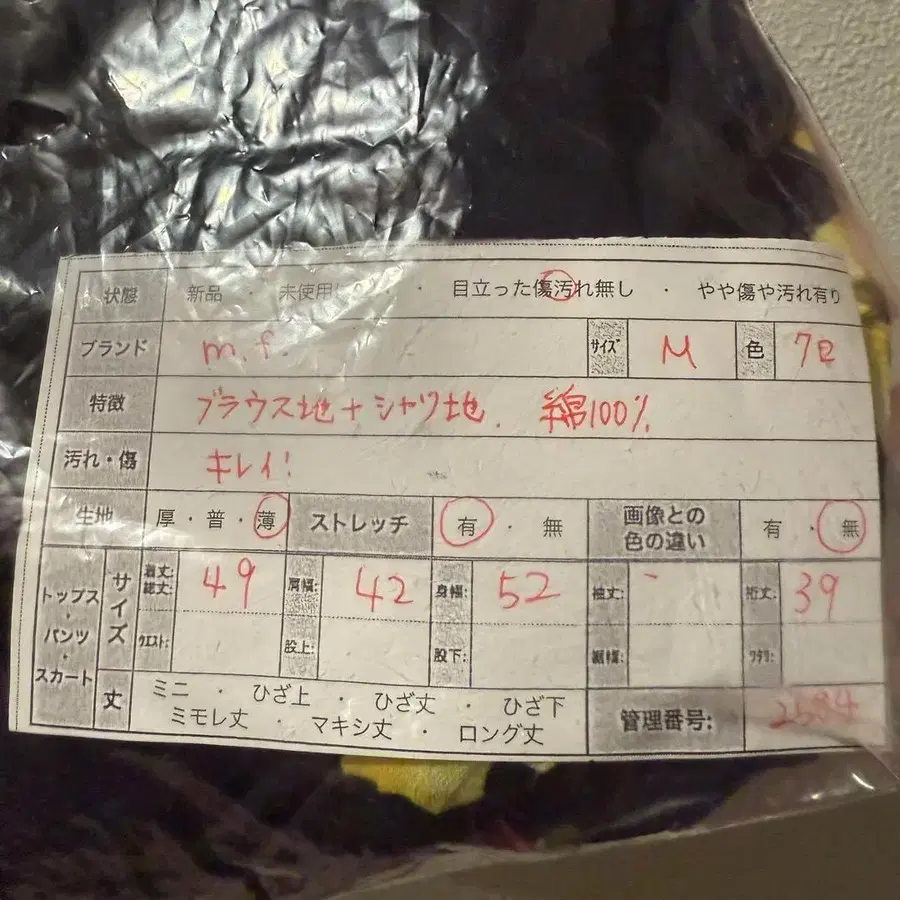 状態 新品 ・ 未使用に ・ 目立った傷汚れ無し ・ やや傷や汚れ有り
ブランド m.f. サイズ M 色
特徴 ブラウス地+シャツ地. 綿100%
汚れ・傷 キレイ!
生地 厚・普・薄 ストレッチ 有 ・ 無 画像との色の違い 有 ・ 無
トップス・パンツ・スカート サイズ 着丈: 総丈: 49 肩幅: 42 身幅: 52 袖丈: - 裄丈: 39
ウエスト: 股上: 股下: 裾幅: ワタリ:
丈 ミニ ・ ひざ上 ・ ひざ丈 ・ ひざ下
ミモレ丈 ・ マキシ丈 ・ ロング丈 管理番号: 2584